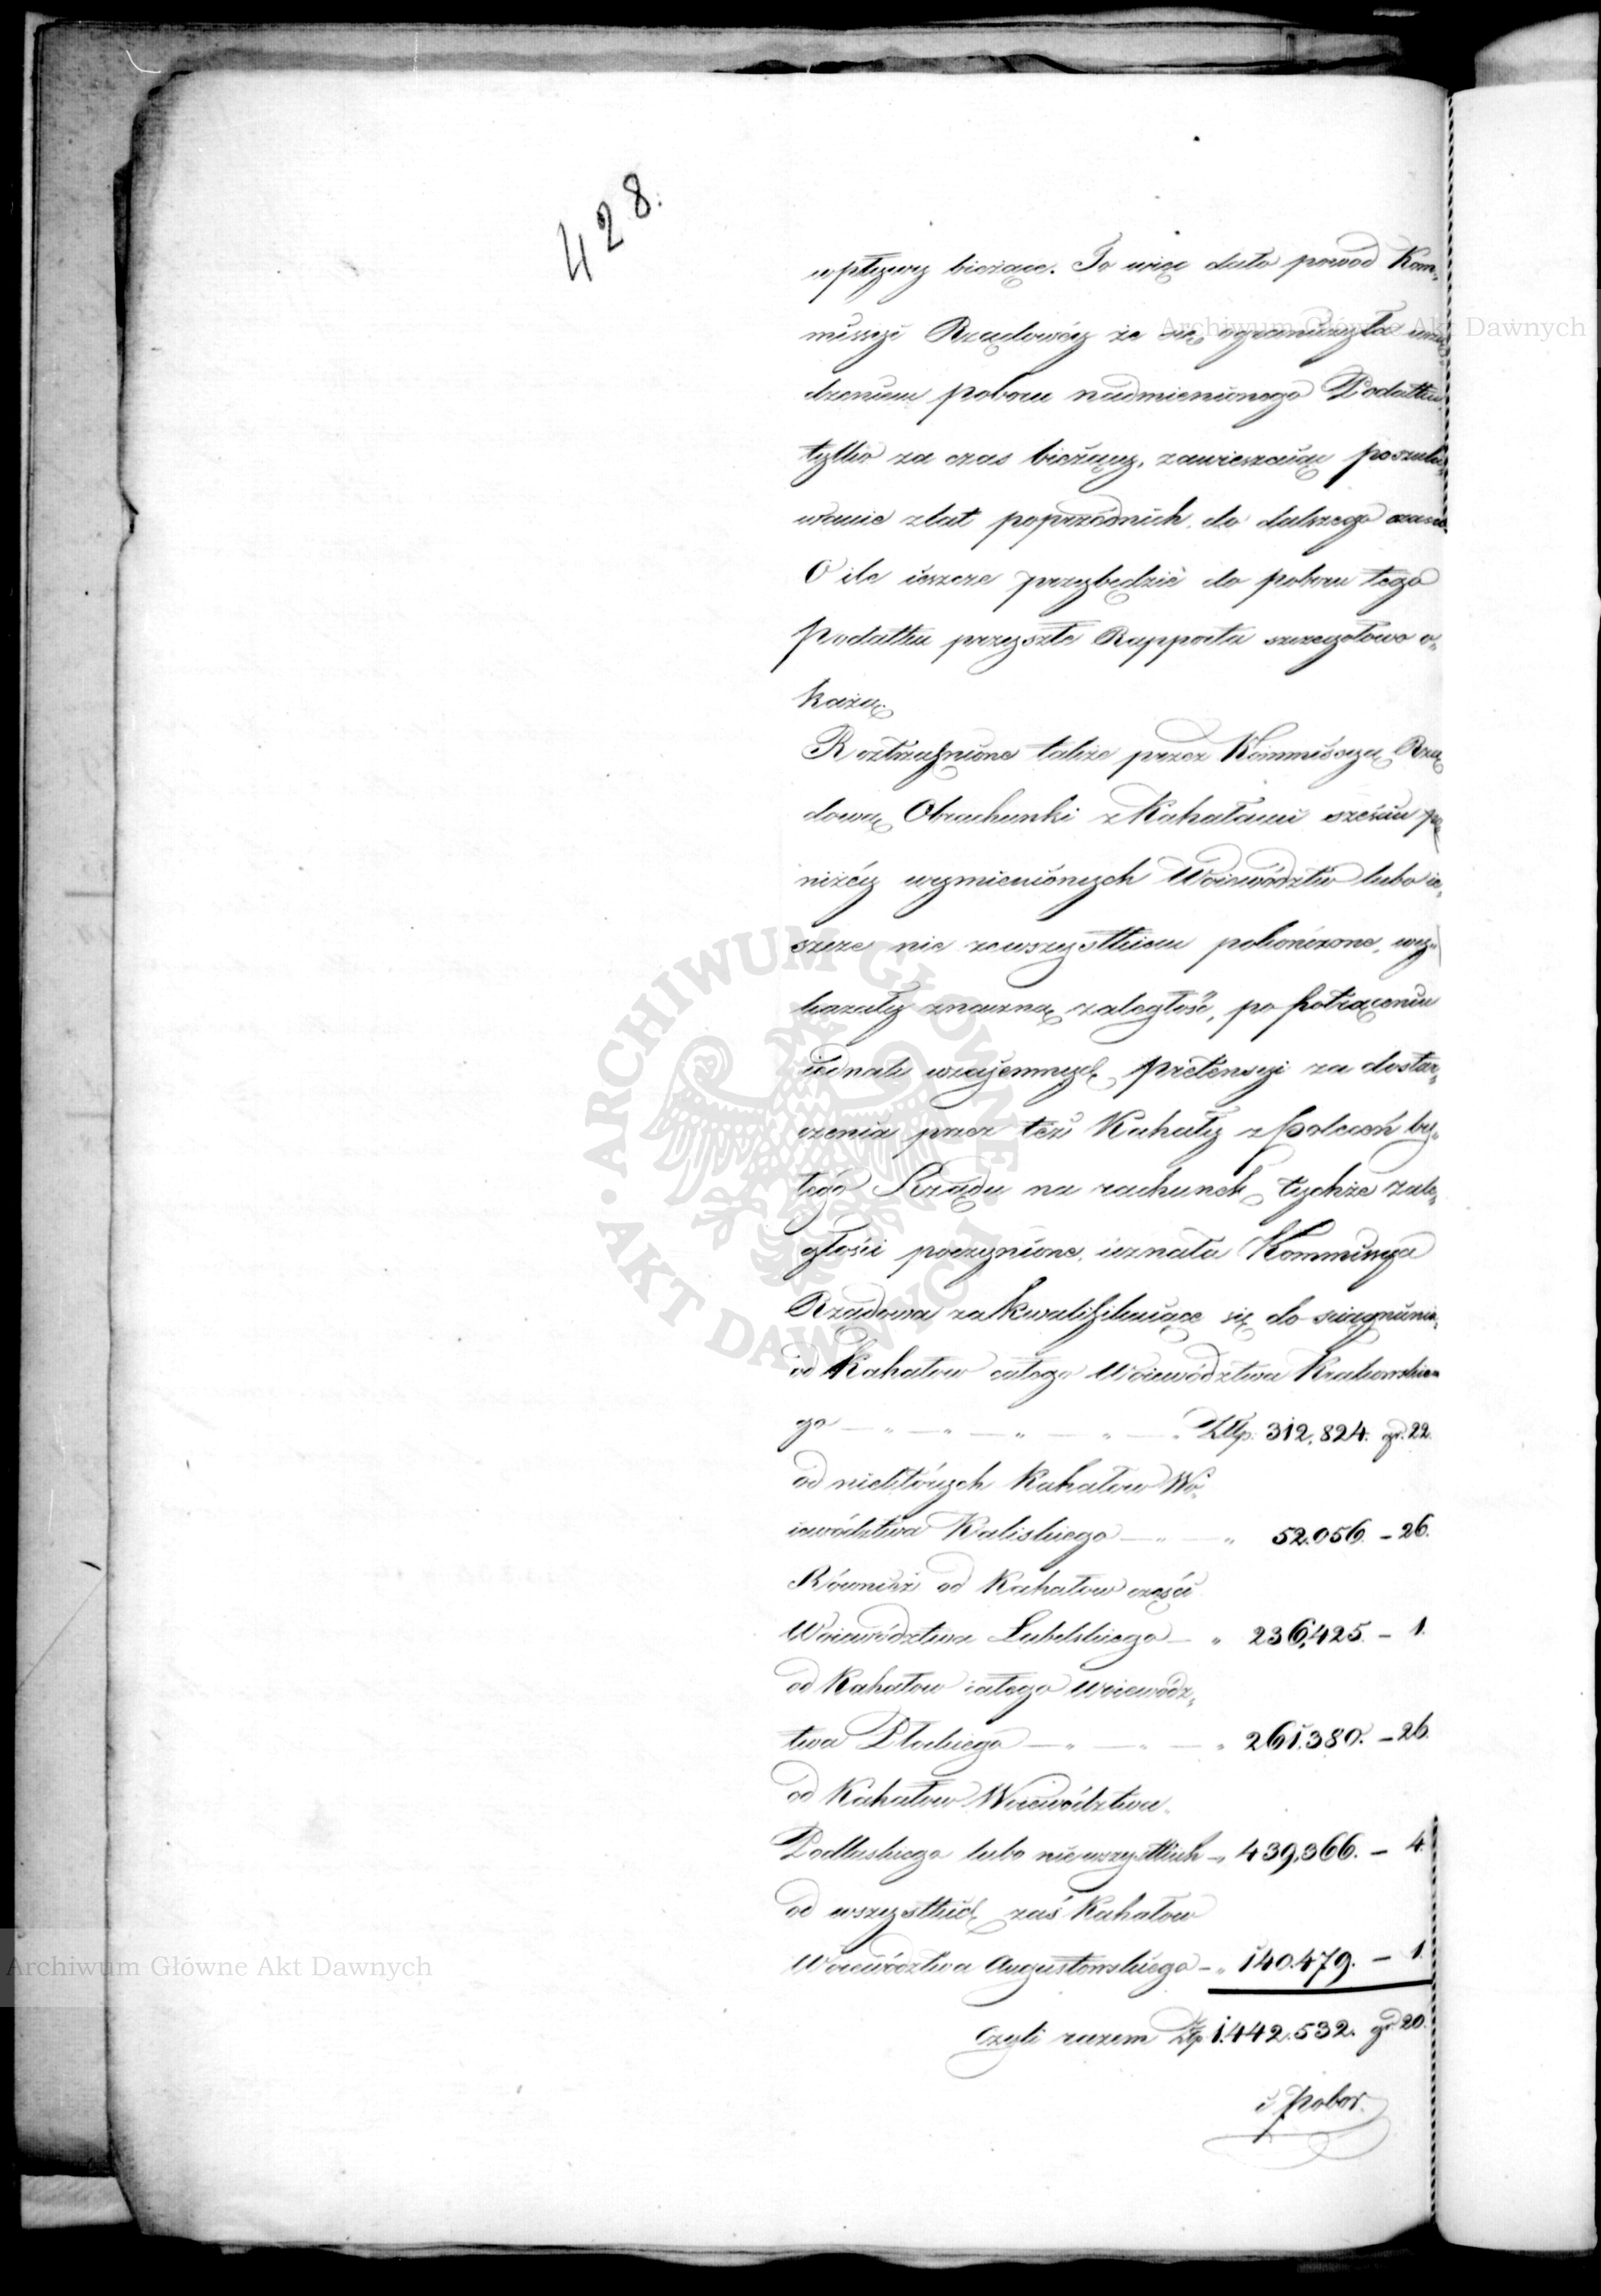 428.
wpływy bieżące. To więc dało powód Kom„
missyi Rządowéy że się ograniczyła urzą„
dzeniem poboru nadmienionego Podatku
tylko za czas bieżący, zawieszaiąc poszuki„
wanie z lat poprzednich, do dalszego czasu.
O ile ieszcze przybędzie do poboru tego
Podatku przyszłe Rapporta szczegółowo o„
każą.
Roztrząśnione także przez Kommissyą Rzą„
dową Obrachunki z Kahałami sześciu po„
niżéy wymienionych Woiewództw lubo ie„
szcze nie zewszystkiem pokończone, wy„
kazały znaczną zaległość, po potrąceniu
iednak wzaiemnych pretensyi za dostar„
czenia przez też Kahały z poleceń by„
łego Rządu na rachunek tychże zale„
głości poczynione, uznała Kommissya
Rządowa za kwalifikuiące się do ściągnienia„
od Kahałow całego Woiewództwa Krakowskie„
go — „ — „ — „ — „ — Złtp. 312,824. gr. 22.
od niektórych Kahałow Wo„
iewództwa Kaliskiego — „ — „ 52.056. – 26.
Również od Kahałow części
Woiewództwa Lubelskiego — „ 236,425. – 1.
od Kahałow całego Woiewódz„
twa Płockiego — „ — „ — „ 261.380. – 26.
od Kahałow Woiewództwa
Podlaskiego lubo nie wszystkich – „ 439,366. – 4.
od wszystkich zaś Kahałow
Woiewództwa Augustowskiego – „ 140.479. – 1.
Czyli razem Złp 1.442.532. gr. 20.
i Pobor.
Archiwum Główne Akt Dawnych
Archiwum Główne Akt Dawnych
ARCHIWUM GŁÓWNE AKT DAWNYCH